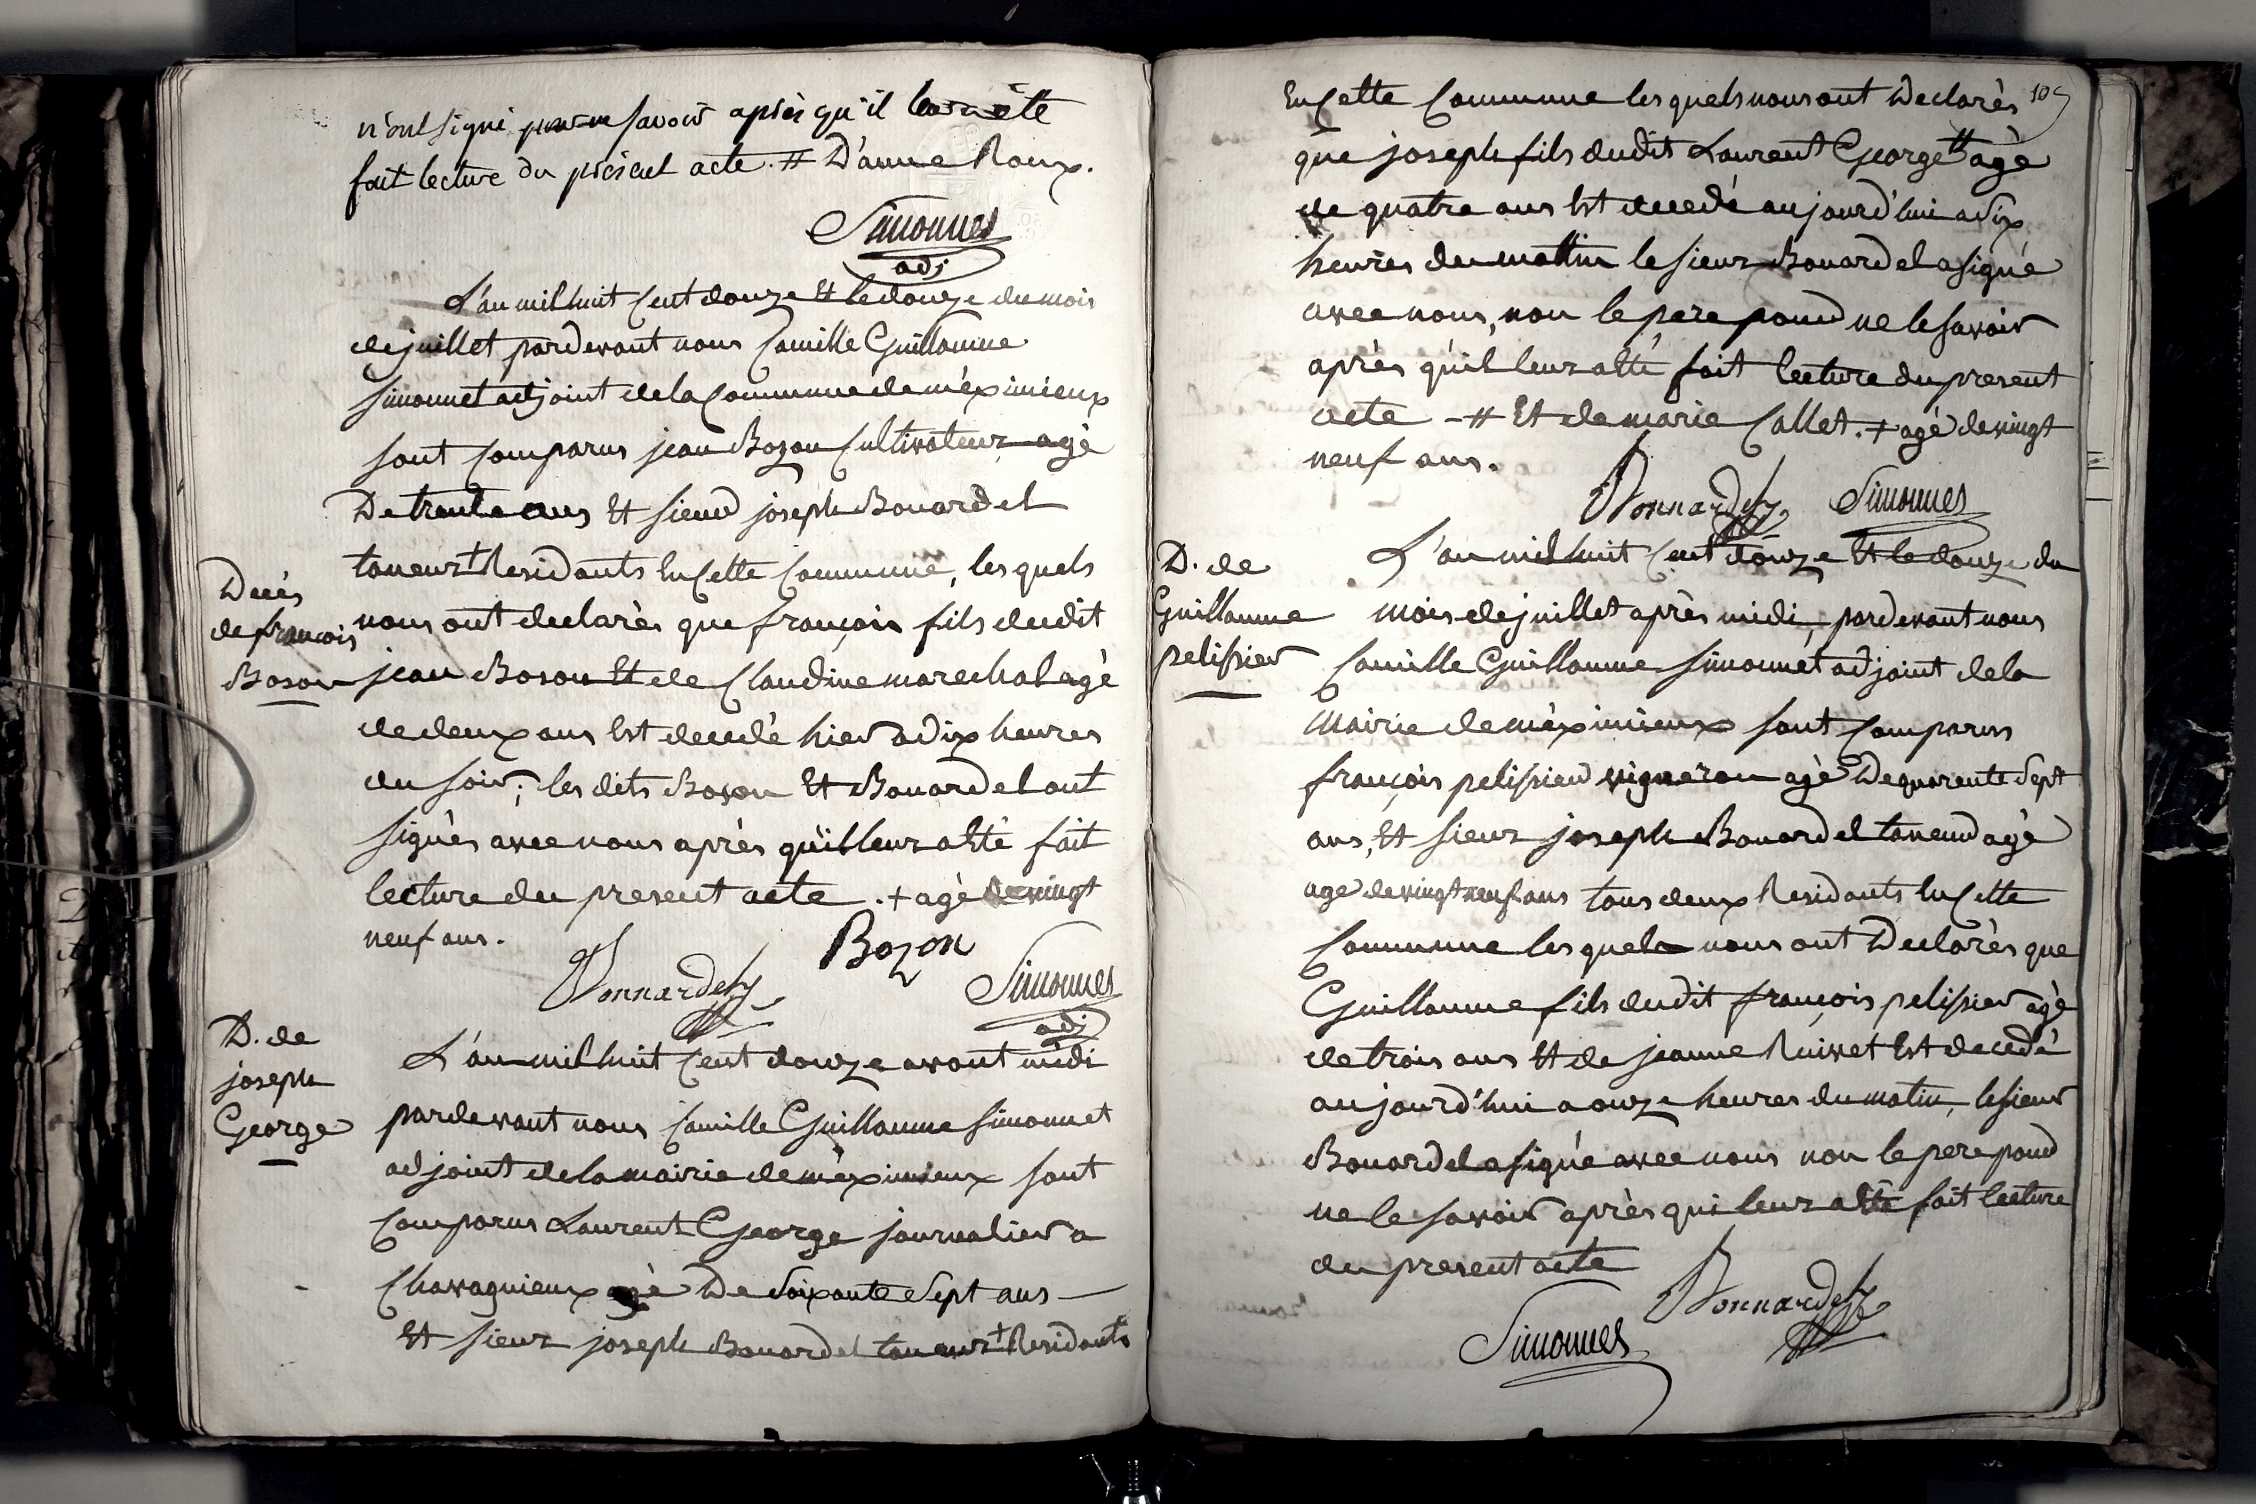 n'ont signé pour ne savoir après qu'il leur a été
fait lecture du présent acte. # D'anne Roux.
Simonnet
adj
L'an mil huit cent douze Et le douze du mois
de juillet pardevant nous Camille Guillaume
simonnet adjoint de la Commune de méximieux
sont comparus jean Bozon Cultivateur agé
De trente ans Et sieur joseph Bonardel
taneur + Residants En Cette Commune, les quels
Decès
de françois
Boson
nous ont declarés que françois fils dudit
jean Boson Et de Claudine marechal agé
de deux ans Est decedé hier a dix heures
du soir; les dits Boson Et Bonardel ont
signés avec nous après qu'il leur a Eté fait
lecture du present acte . + agé de vingt
neuf ans.
Bozon
Bonnardel
Simonnet
adj
D. de
joseph
George
L'an mil huit cent douze avant midi
pardevant nous Camille Guillaume simonnet
adjoint de la mairie de méximieux sont
Comparus Laurent George journalier a
Chavagnieux agé De Soixante Sept ans —
Et sieur joseph Bonardel taneur + Residants
105
En Cette Commune les quels nous ont Declarés
que joseph fils dudit Laurent George # agé
de quatre ans Est decedé aujourd'hui a dix
heures du matin le sieur Bonardel a signé
avec nous, non le pere pour ne le savoir
après qu'il leur a Eté fait lecture du present
acte - # Et de marie Callet. + agé de vingt
neuf ans.
Bonnardel Simonnet
D. de
Guillaume
pelissier
L'an mil huit cent douze Et le douze du
mois de juillet après midi, pardevant nous
Camille Guillaume simonnet adjoint de la
mairie de méximieux sont Comparus
françois pelissier vigneron agé De quarente Sept
ans, Et sieur joseph Bonardel taneur agé
age de vingt neuf ans tous deux Residants En Cette
Commune les quels nous ont Declarés que
Guillaume fils dudit françois pelissier agé
de trois ans Et de jeanne Ruivet Est decedé
aujourd'hui a onze heures du matin, le sieur
Bonardel a signé avec nous non le pere pour
ne le savoir après qui leur a Eté fait lecture
du present acte
Bonnardel
Simonnet